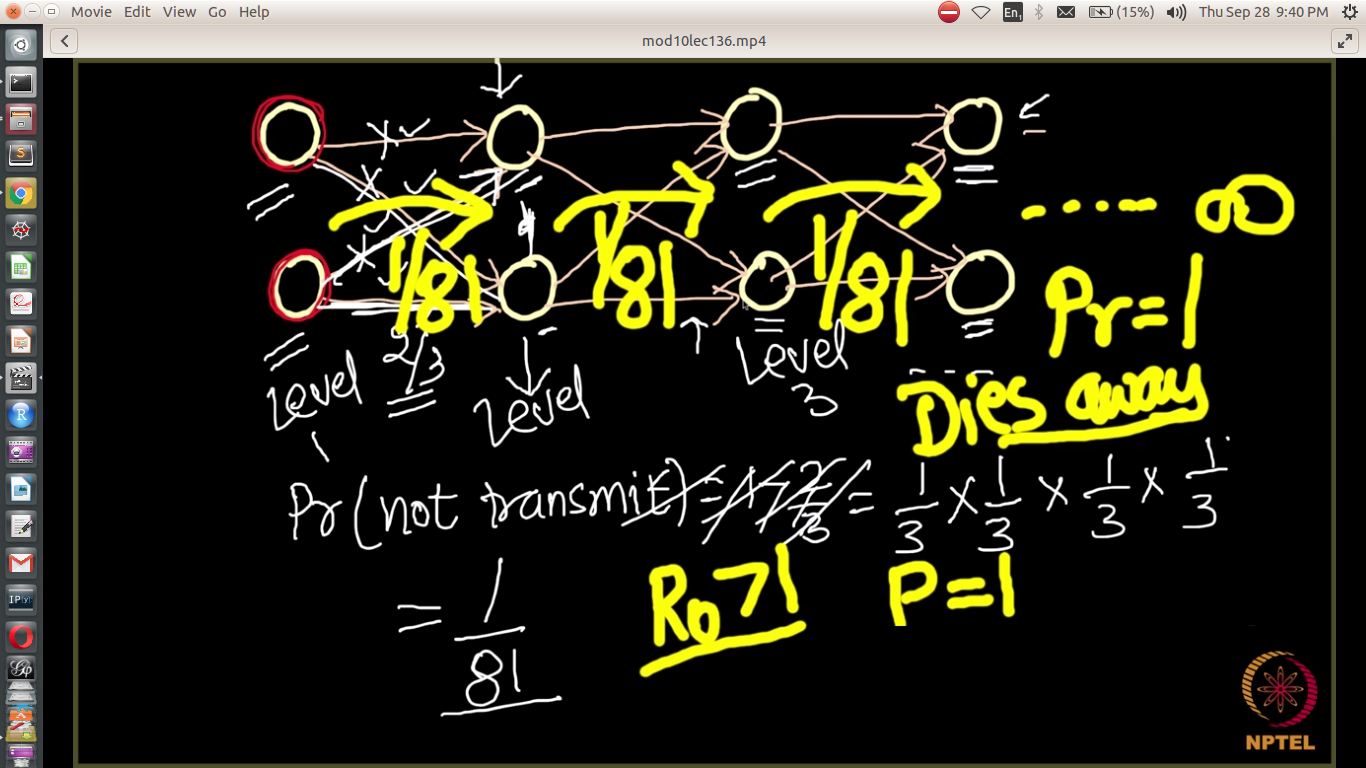 Movie Edit View Go Help En1 (15%) Thu Sep 28 9:40 PM
mod10lec136.mp4
1/81 1/81 1/81 ..... ∞
Pr=1
2/3
Level 1
Level
Level 3
Dies away
Pr(not transmit) = 1 - 2/3 = 1/3 × 1/3 × 1/3 × 1/3
= 1/81
R0>1 P=1
NPTEL